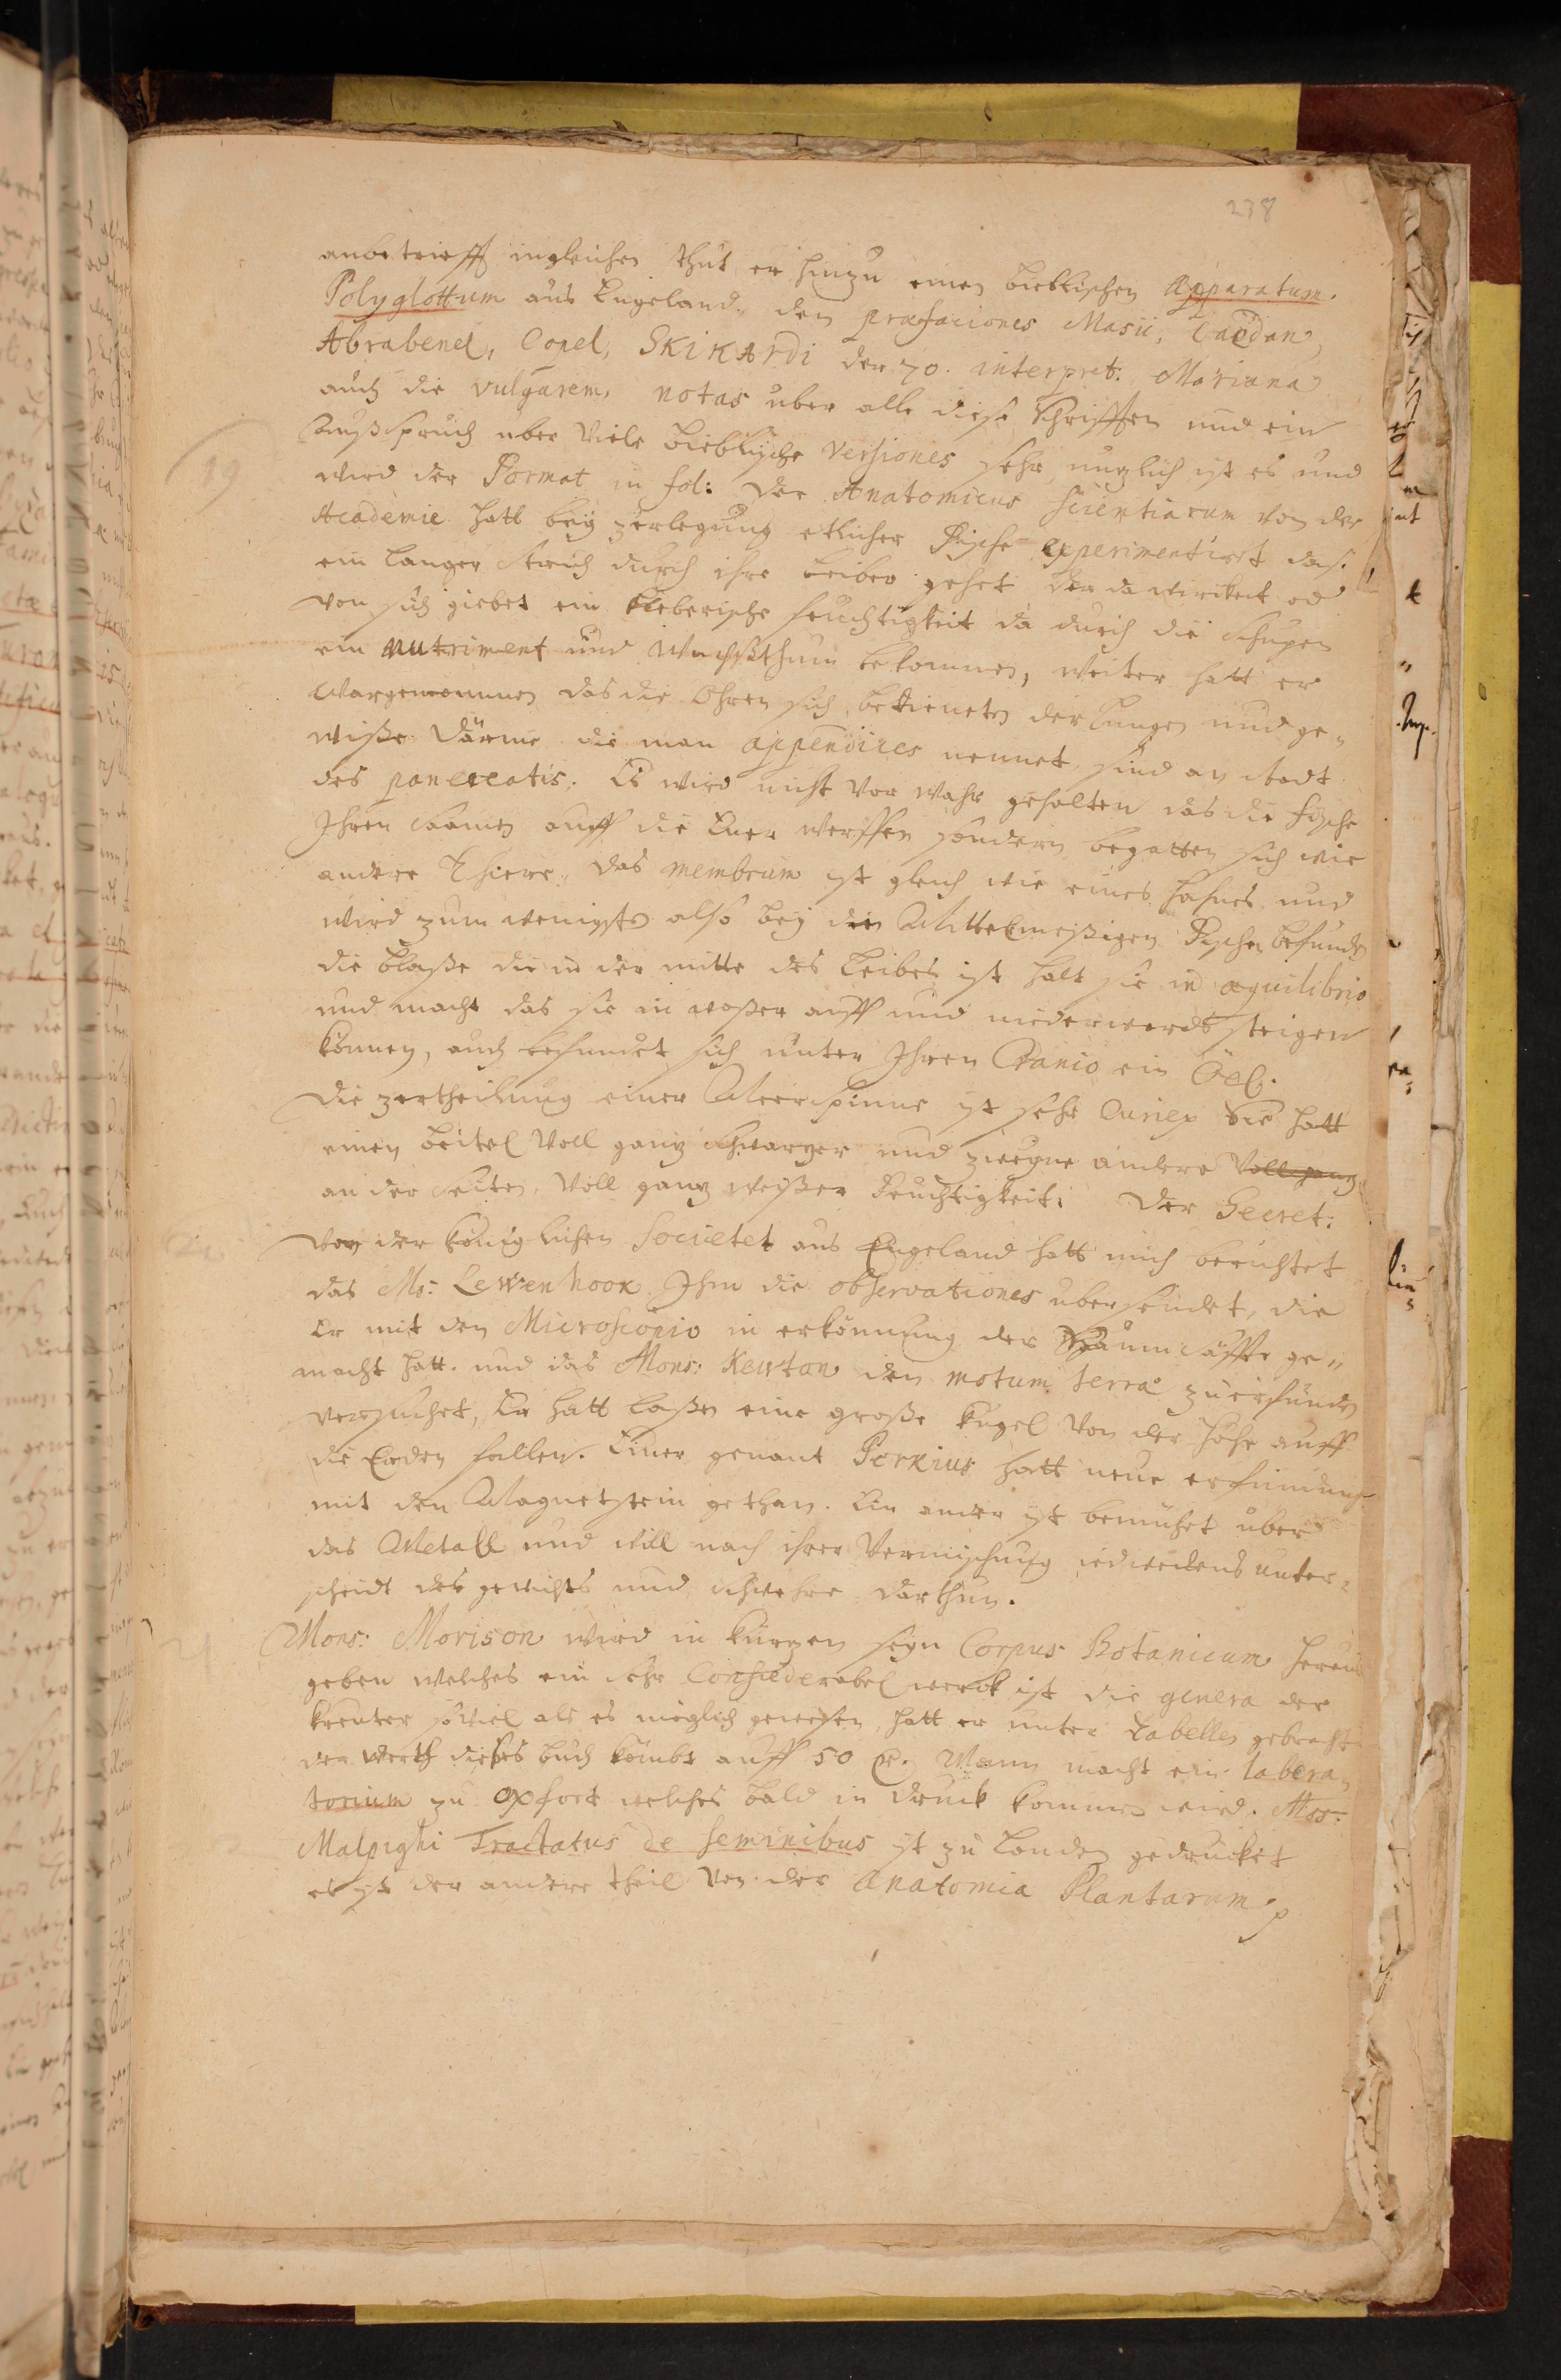 238
anbetrieff ingleichen thut er hinzu einen bieblischen Apparatum.
Polyglottum aus Engeland, den præfaciones Masii,
Abrabenel, Capel, SKIKARDi der 70. interpret: Mariana
auch die vulgarem, notas uber alle diese Schrifften und ein
Außspruch uber viele bieblische Versiones sehr nuzlich ist es und
19
wird der Format in fol: Der Anatomicus Scientiarum von der
Academie hatt bey zerlegung etlicher Fische experimentiret das
ein langer strich durch ihre Leiber gehet der da wircket od
von sich giebet ein kleberische feuchtigkeit da durch die Schupen
ein nutriment und Wachsthum bekommen, weiter hatt er
Wargenommen das die Ohren sich bedieneten der Lungen und ge-
wiße Därme die man appendices nennet sind an stadt
des pancreatis. Es wird nicht vor wahr gehalten das die Fische
Ihren Saamen auff die Eyer werffen sondern begatten sich wie
andere Thiere, Das membrum ist gleich wie eines Hahnes und
wird zum wenigsten also bey den Mittelmeßigen Fischen befunden
die Blaße die in der mitte des Leibes ist halt sie in æquilibrio
und macht das sie in waßer auff und niederwerds steigen
können, auch befindet sich unter Ihren Cranio ein Öel.
Die zertheilung einer Meerspinne ist sehr Curiex Sie hatt
einen beitel voll ganz schwarzer und zweyne andere voll ganz
an der Seiten, voll ganz weißer Feuchtigkeit. Der Secret:
von der königlichen Societet aus Engeland hatt mich berichtet
das Mr: Lewenhoox Ihm die observationes ubersendet, die
Er mit den Microscopio in erkönnung der Baumsäffte ge-
macht hatt. und das Mons: Newton den motum terræ zu erfinden
versuchet, Er hatt laßen eine große Kugel von der Höhe auff
die Erden fallen. Einer genant Perkius hatt neue erfindung
mit den Magnetstein gethan. Ein ander ist bemühet uber
das Metall und will nach ihrer Vermischung iedweedens unter-
scheidt des gewichts und schwehre darthun.
Mons: Morison wird in kurzen seyn Corpus Botanicum heraus
geben welches ein sehr Consiederabel werck ist die genera der
kreuter soviel als es möglich gewesen, hatt er unter Tabellen gebracht
der werth dießes buch kombt auff 50 Mann macht ein labora-
torium zu Oxfort welches bald in druck kommen wird. Mr:
Malpighi Tractatus de seminibus ist zu Londen gedrucket
es ist der andere theil von der Anatomia Plantarum p